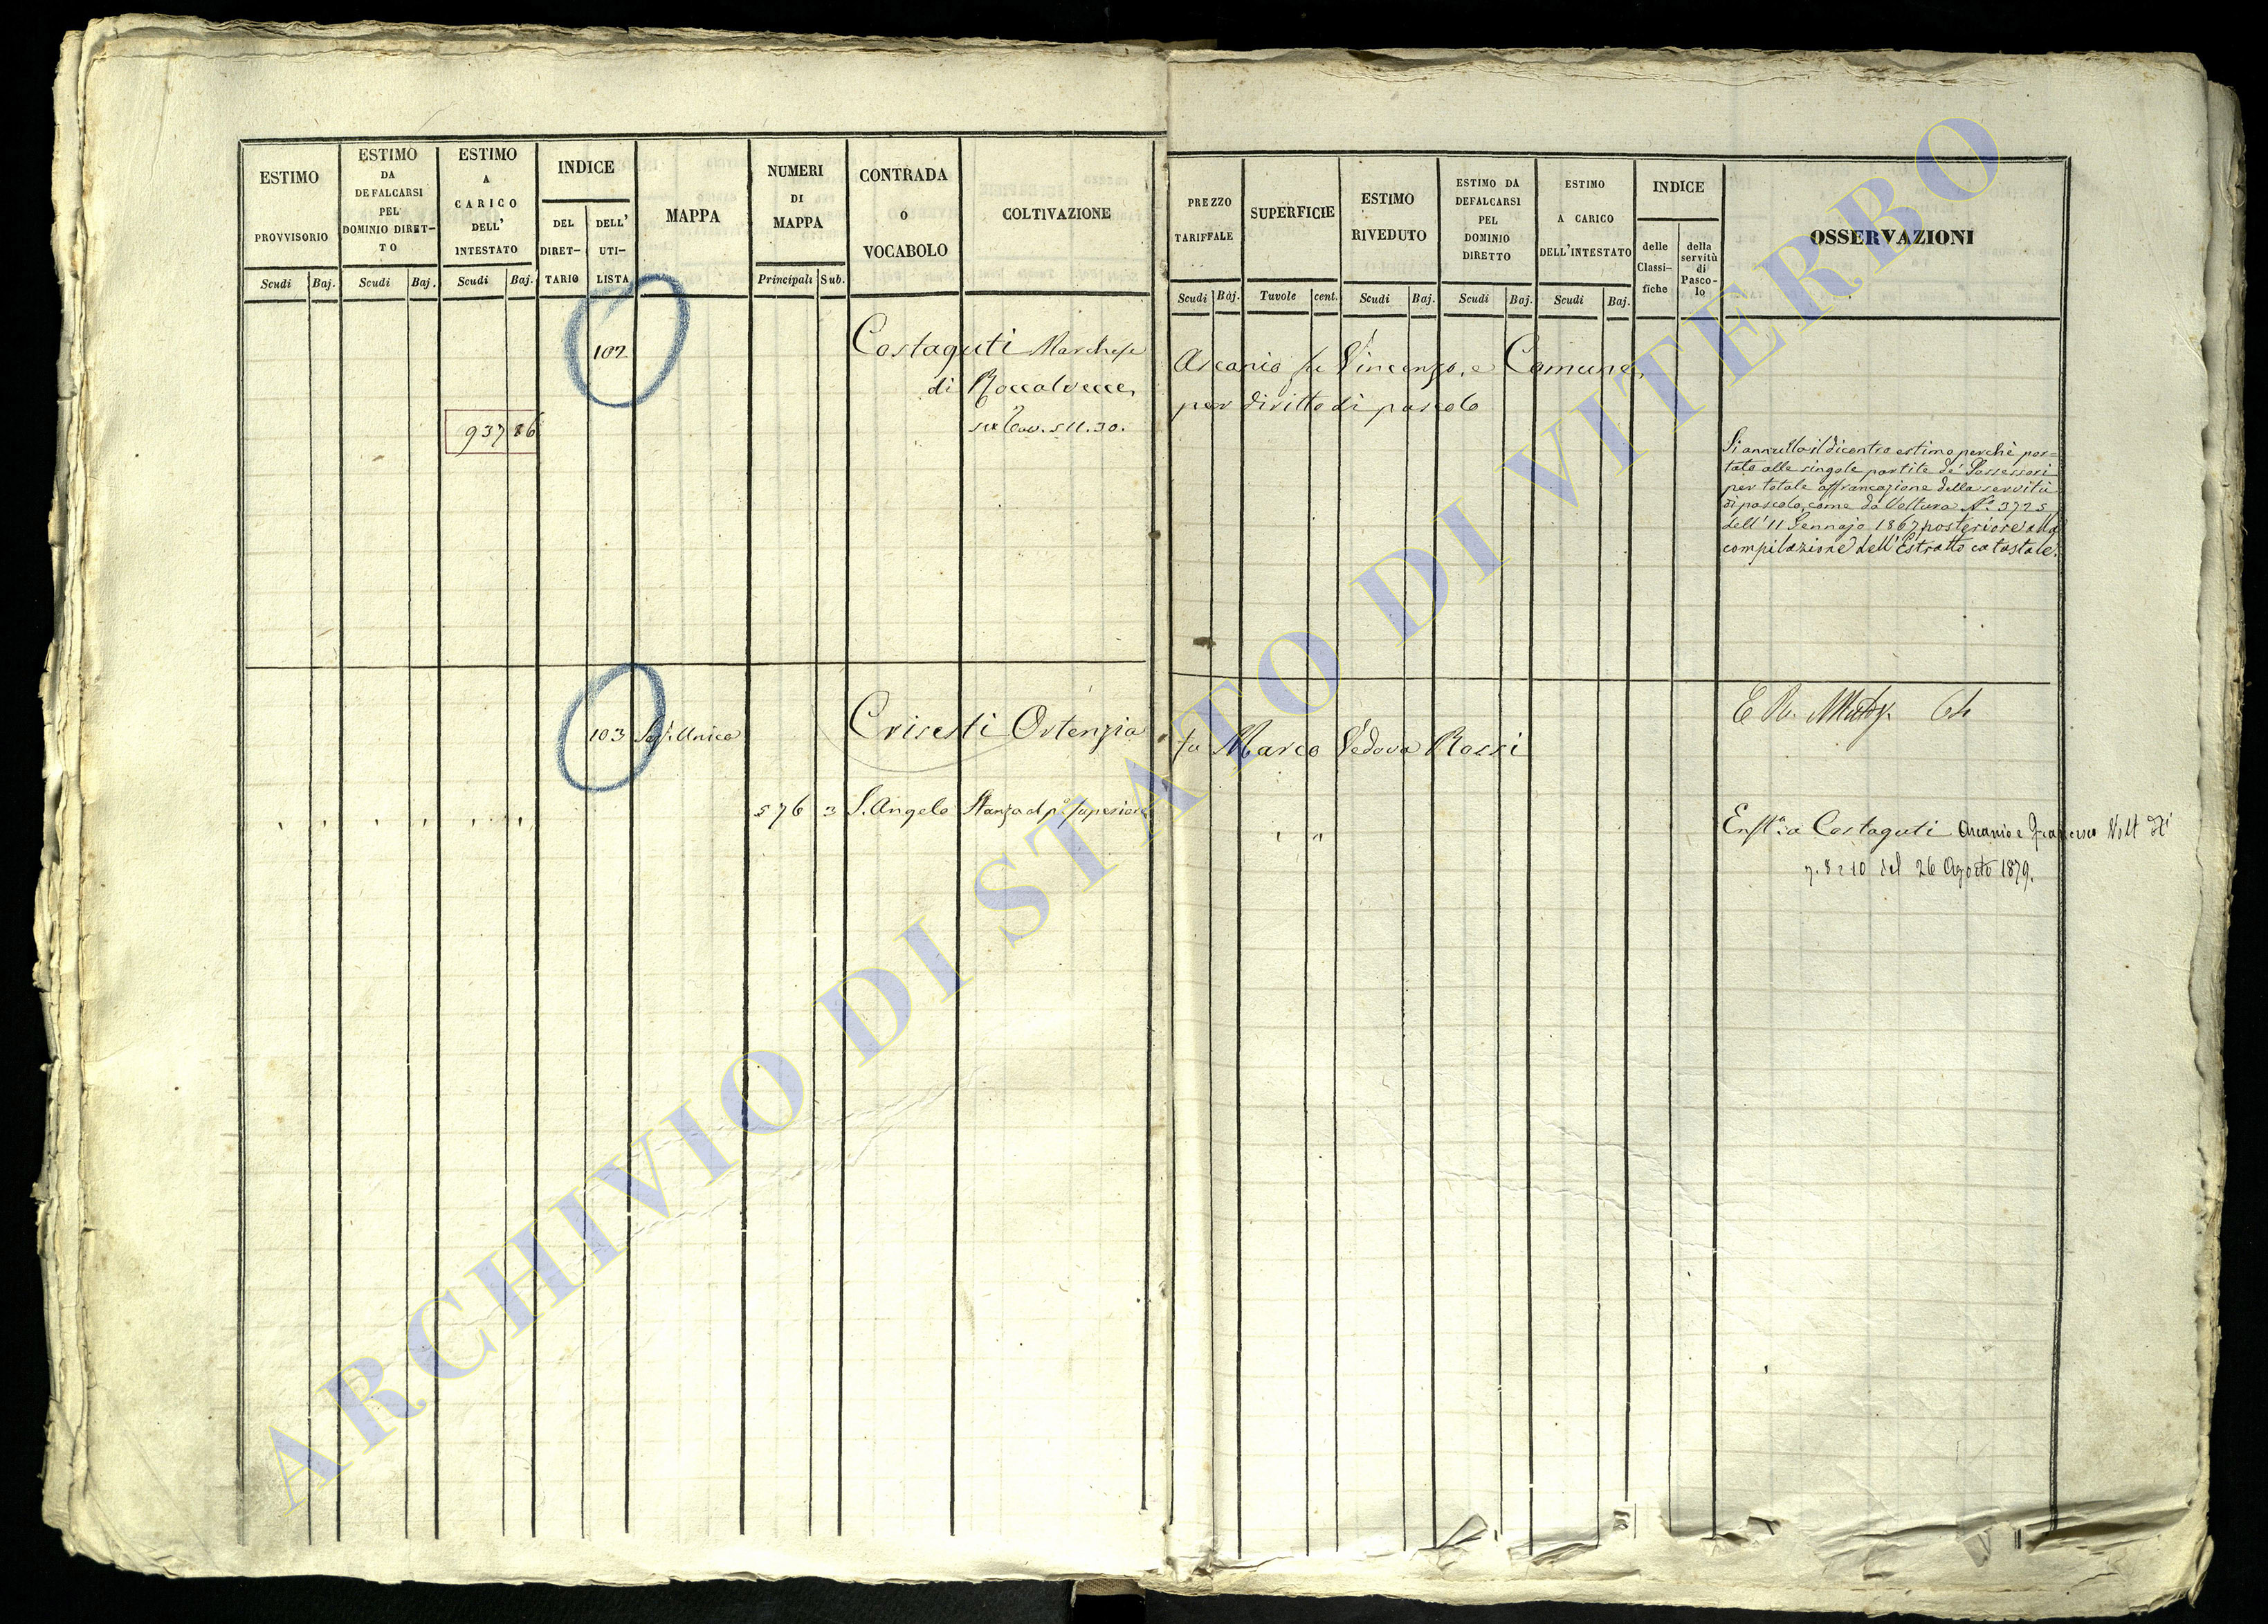 ESTIMO
PROVVISORIO
Scudi Baj.
ESTIMO
DA
DEFALCARSI
PEL
DOMINIO DIRET-
TO
Scudi Baj.
ESTIMO
A
CARICO
DELL'
INTESTATO
Scudi Baj.
INDICE
DEL
DIRET-
TARIO
DELL'
UTI-
LISTA
MAPPA
NUMERI
DI
MAPPA
Principali Sub.
CONTRADA
O
VOCABOLO
COLTIVAZIONE
PREZZO
TARIFFALE
Scudi Baj.
SUPERFICIE
Tavole cent.
ESTIMO
RIVEDUTO
Scudi Baj.
ESTIMO DA
DEFALCARSI
PEL
DOMINIO
DIRETTO
Scudi Baj.
ESTIMO
A CARICO
DELL'INTESTATO
Scudi Baj.
INDICE
delle
Classi-
fiche
della
servitù
di
Pasco-
lo
OSSERVAZIONI
102 Costaguti Marchese Ascanio fu Vincenzo, e Comune
di Roccalvecce, per diritto di pascolo
937 86 511.30.
Si annulla il dicontro estimo perchè por=
tato alle singole partite de' Possessori
per totale affrancazione della servitù
di pascolo, come da Voltura N.° 3725
dell' 11 Gennajo 1867 posteriore alla
compilazione dell'Estratto catastale.
103 Sez. Unica Cristi Ortenzia fu Marco Vedova Rossi
576 3 S. Angelo Stanza al p.° superiore
Costaguti Ascanio e Francesco Volt
del 26 Agosto 1879.
ARCHIVIO DI STATO DI VITERBO